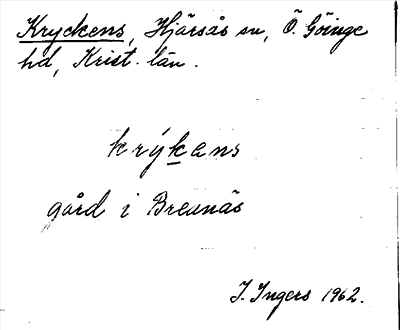 Kryckens, Hjärsås sn, Ö. Göinge
hd, Krist. län.
krýkans
gård i Brednäs
I. Ingers 1962.